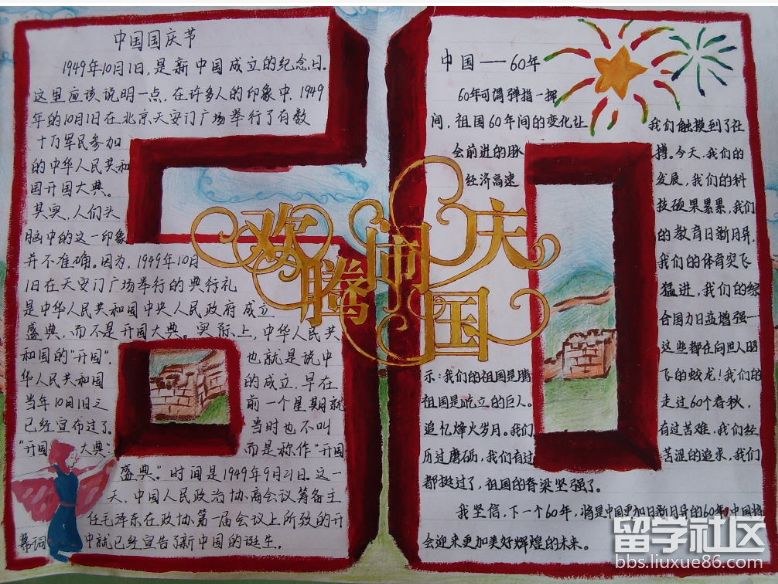 中国国庆节
1949年10月1日,是新中国成立的纪念日。
这里应该说明一点,在许多人的印象中,1949
年的10月1日在北京天安门广场举行了有数
十万军民参加
的中华人民共和
国开国大典。
其实,人们头
脑中的这一印象
并不准确。因为,1949年10月
1日在天安门广场举行的典礼
是中华人民共和国中央人民政府成立
盛典,而不是开国大典。实际上,中华人民共
和国的"开国", 也就是说中
华人民共和国 的成立,早在
当年10月1日之 前一个星期就
已经宣布过了。 当时也不叫
"开国 大典", 而是称作"开国
盛典"。时间是1949年9月21日。这一
天,中国人民政治协商会议筹备主
任毛泽东在政协第一届会议上所致的开
幕词 中就已经宣告了新中国的诞生。
欢腾闹国庆
中国——60年
60年可谓弹指一挥
间,祖国60年间的变化让 我们触摸到了社
会前进的脉 搏。今天,我们的
经济高速 发展,我们的科
技硕果累累,我们
的教育日新月异,
我们的体育突飞
猛进,我们的综
合国力日益增强—
这些都在向世人昭
示:我们的祖国是腾 飞的蛟龙!我们的
祖国是屹立的巨人。 走过60个春秋,
追忆烽火岁月。我们 有过苦难,我们经
历过磨砺,我们有过 苦涩的追求,我们
都挺过了,祖国的脊梁坚强了。
我坚信,下一个60年,将是中国更加日新月异的60年,中国将
会迎来更加美好辉煌的未来。
留学社区
bbs.liuxue86.com